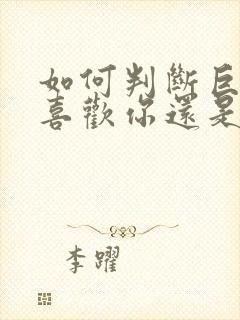 如何判斷巨
喜歡你還是
李躍